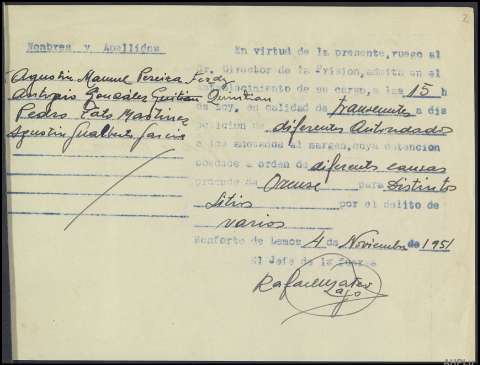 2
Nombres y Apellidos
Agustin Manuel Pereira
Antonio González Guitián Quintian
Pedro Pato Martinez
Agustin Gualberto Garcia
En virtud de la presente, ruego al
Sr. Director de la Prision, admita en el
establecimiento de su cargo, a las 15 h
de hoy, en calidad de transeuntes a dis
posicion de diferentes Autoridades
a los anotados al margen, cuya detencion
obedece a orden de diferentes causas
procede de Orense para distintos
sitios por el delito de
varios
Monforte de Lemos 4 de Noviembre de 1951
El Jefe de la fuerza
Rafael Mateo
Lago